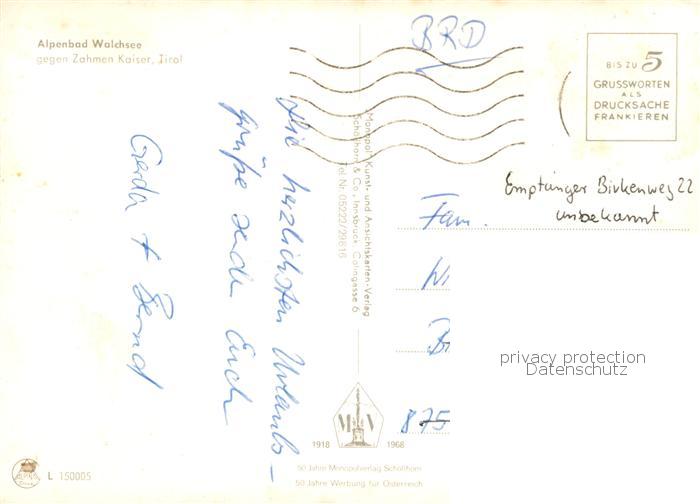 Alpenbad Walchsee
gegen Zahmen Kaiser, Tirol
BRD
BIS ZU 5
GRUSSWORTEN
ALS
DRUCKSACHE
FRANKIEREN
Die herzlichsten Urlaubs-
grüße senden Euch
Gerda + Bernd
Monopol-Kunst- und Ansichtskarten-Verlag
Schöllhorn & Co., Innsbruck, Colingasse 6
Tel Nr. 05222/29816
Empfänger Birkenweg 22
unbekannt
Fam.
875
privacy protection
Datenschutz
M V
1918 1968
50 Jahre Monopolverlag Schöllhorn
50 Jahre Werbung für Österreich
L 150005